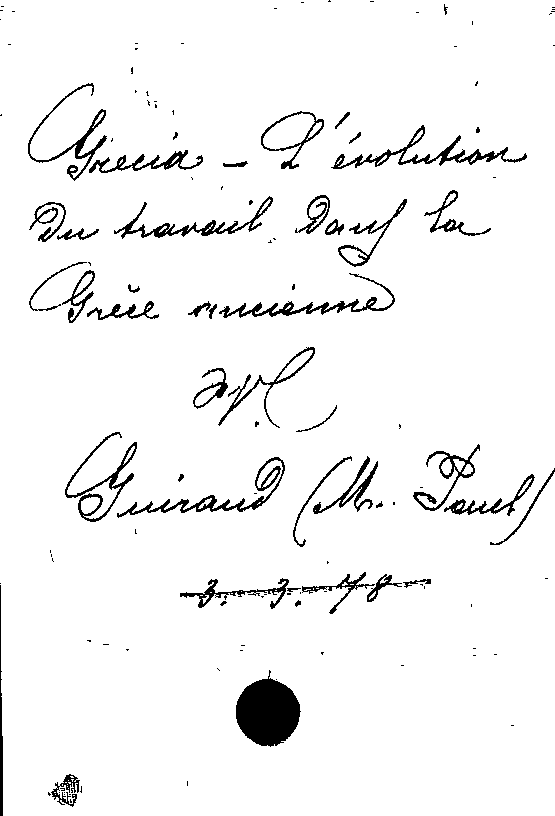 Grecia - L'évolution
du travail dans la
Grèce ancienne
Guiraud (M. Paul)
3. 3. 48